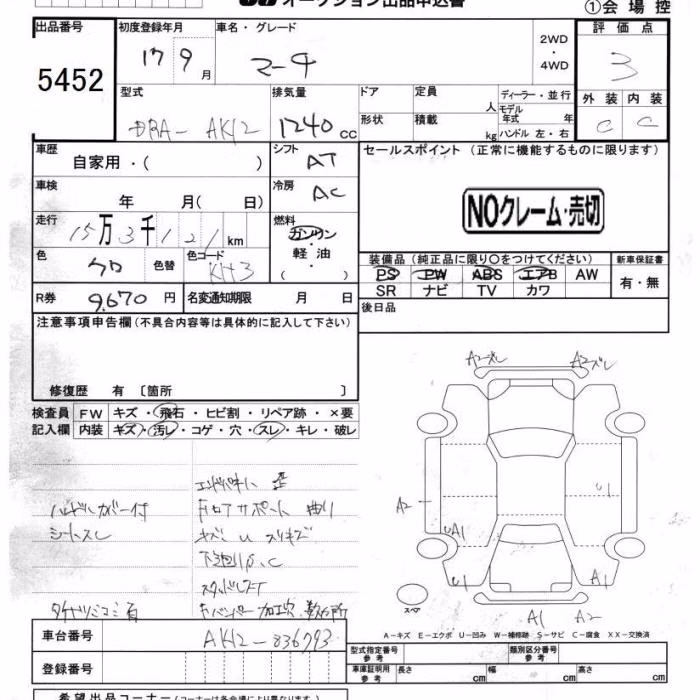 オークション出品申込書
①会場控
出品番号
5452
初度登録年月
17 9 月
車名・グレード
マーチ
2WD
・
4WD
評価点
3
型式
DBA- AK12
排気量
1240 cc
ドア
定員
人
形状
積載
kg
ディーラー・並行
モデル年式 年
ハンドル 左・右
外装 内装
C C
車歴
自家用・( )
シフト
AT
セールスポイント (正常に機能するものに限ります)
NOクレーム・売切
車検
年 月( 日)
冷房
AC
走行
15万3千121km
燃料
ガソリン
軽油
( )
色
クロ
色替
色コード
KH3
装備品(純正品に限り○をつけてください)
PS PW ABS エアB AW
SR ナビ TV カワ
新車保証書
有・無
R券
9.670 円
名変通知期限 月 日
後日品
注意事項申告欄(不具合内容等は具体的に記入して下さい)
修復歴 有 〔箇所 〕
検査員記入欄
FW キズ・飛石・ヒビ割・リペア跡・×要
内装 キズ・汚レ・コゲ・穴・スレ・キレ・破レ
ハンドルカバー付
シートスレ
フロアサポート 曲り
キズ U スリキズ
下廻りP.C
Fバンパー加工穴 数ヶ所
A2ズレ
A2ズレ
A2
U1
UA1
U1
A1
A1
A2
スペア
A-キズ E-エクボ U-凹み W-補修跡 S-サビ C-腐食 XX-交換済
車台番号
AK12-836793
登録番号
型式指定番号 参考
類別区分番号 参考
車庫証明用 参考
長さ cm 幅 cm 高さ cm
希望出品コーナー(コーナーは各会場により異なります)